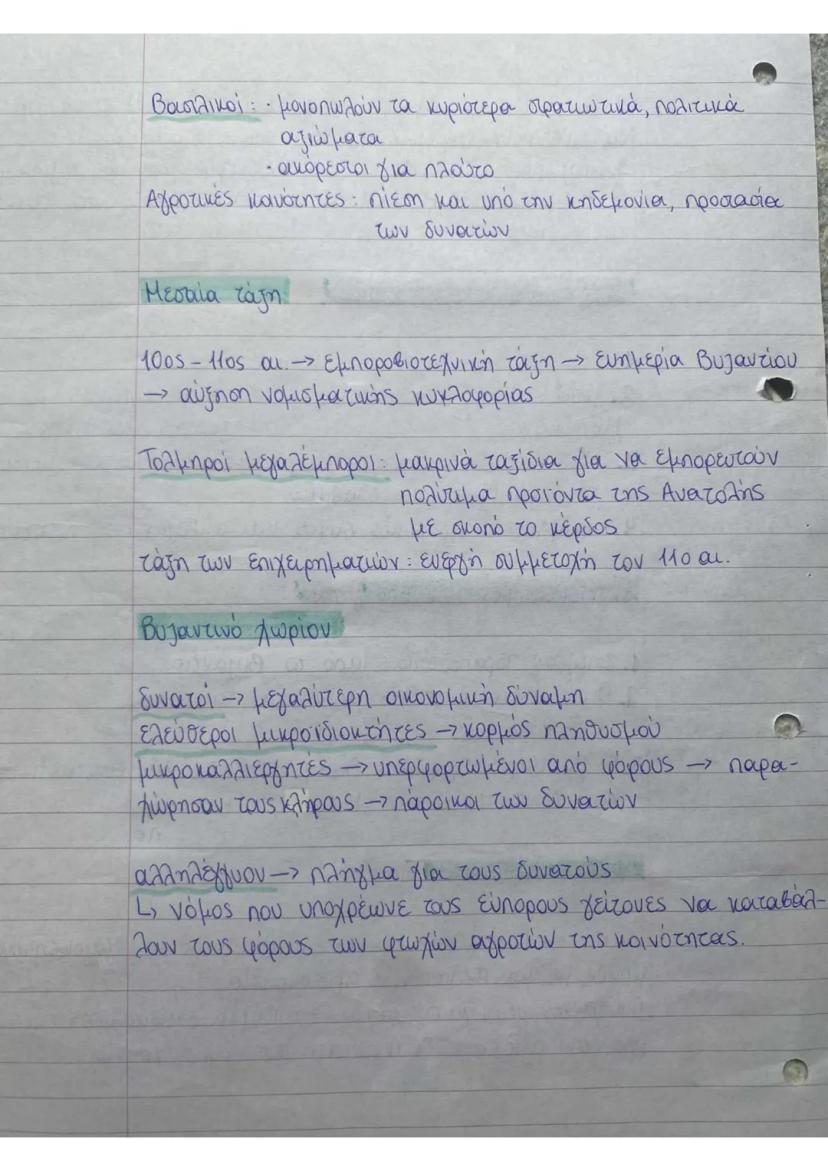 Βασιλικοί: · μονοπωλούν τα κυριότερα στρατιωτικά, πολιτικά
αξιώματα
· ακόρεστοι για πλούτο
Αγροτικές κοινότητες: πίεση και υπό την κηδεμονία, προστασία
των δυνατών
Μεσαία τάξη
10ος - 11ος αι. → εμποροβιοτεχνική τάξη → ευημερία Βυζαντίου
→ αύξηση νομισματικής κυκλοφορίας
Τολμηροί μεγαλέμποροι: μακρινά ταξίδια για να εμπορευτούν
πολύτιμα προϊόντα της Ανατολής
με σκοπό το κέρδος
τάξη των επιχειρηματιών: ενεργή συμμετοχή τον 11ο αι.
Βυζαντινό χωρίον
δυνατοί → μεγαλύτερη οικονομική δύναμη
ελεύθεροι μικροϊδιοκτήτες → κορμός πληθυσμού
μικροκαλλιεργητές → υπερφορτωμένοι από φόρους → παρα-
χώρησαν τους κλήρους → πάροικοι των δυνατών
αλληλέγγυον → πλήγμα για τους δυνατούς
↳ νόμος που υποχρέωνε τους εύπορους γείτονες να καταβάλ-
λουν τους φόρους των φτωχών αγροτών της κοινότητας.